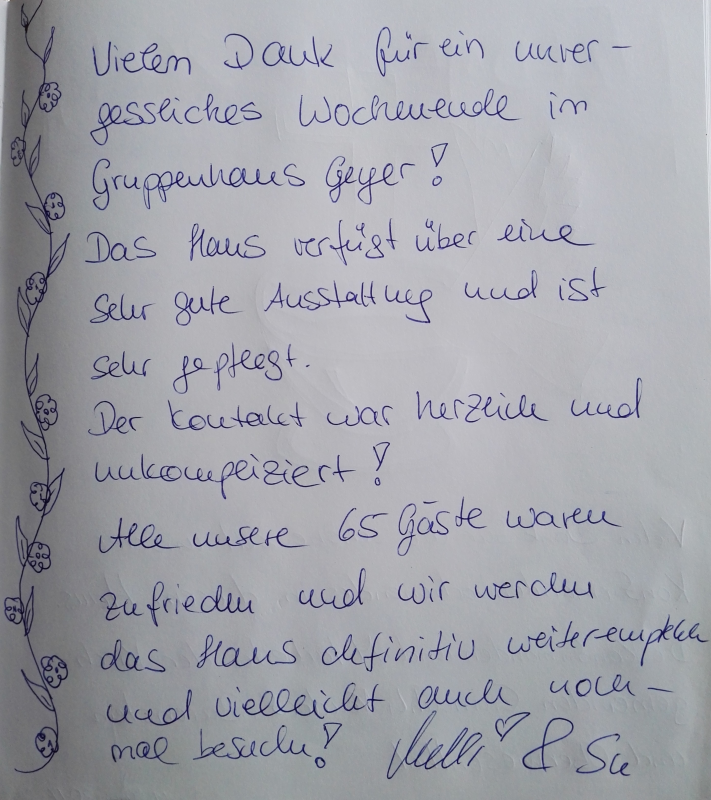 Vielen Dank für ein unver-
gessliches Wochenende im
Gruppenhaus Geyer!
Das Haus verfügt über eine
sehr gute Ausstattung und ist
sehr gepflegt.
Der Kontakt war herzlich und
unkompliziert!
Alle unsere 65 Gäste waren
zufrieden und wir werden
das Haus definitiv weiterempfehlen
und vielleicht auch noch-
mal besuchen! & Su